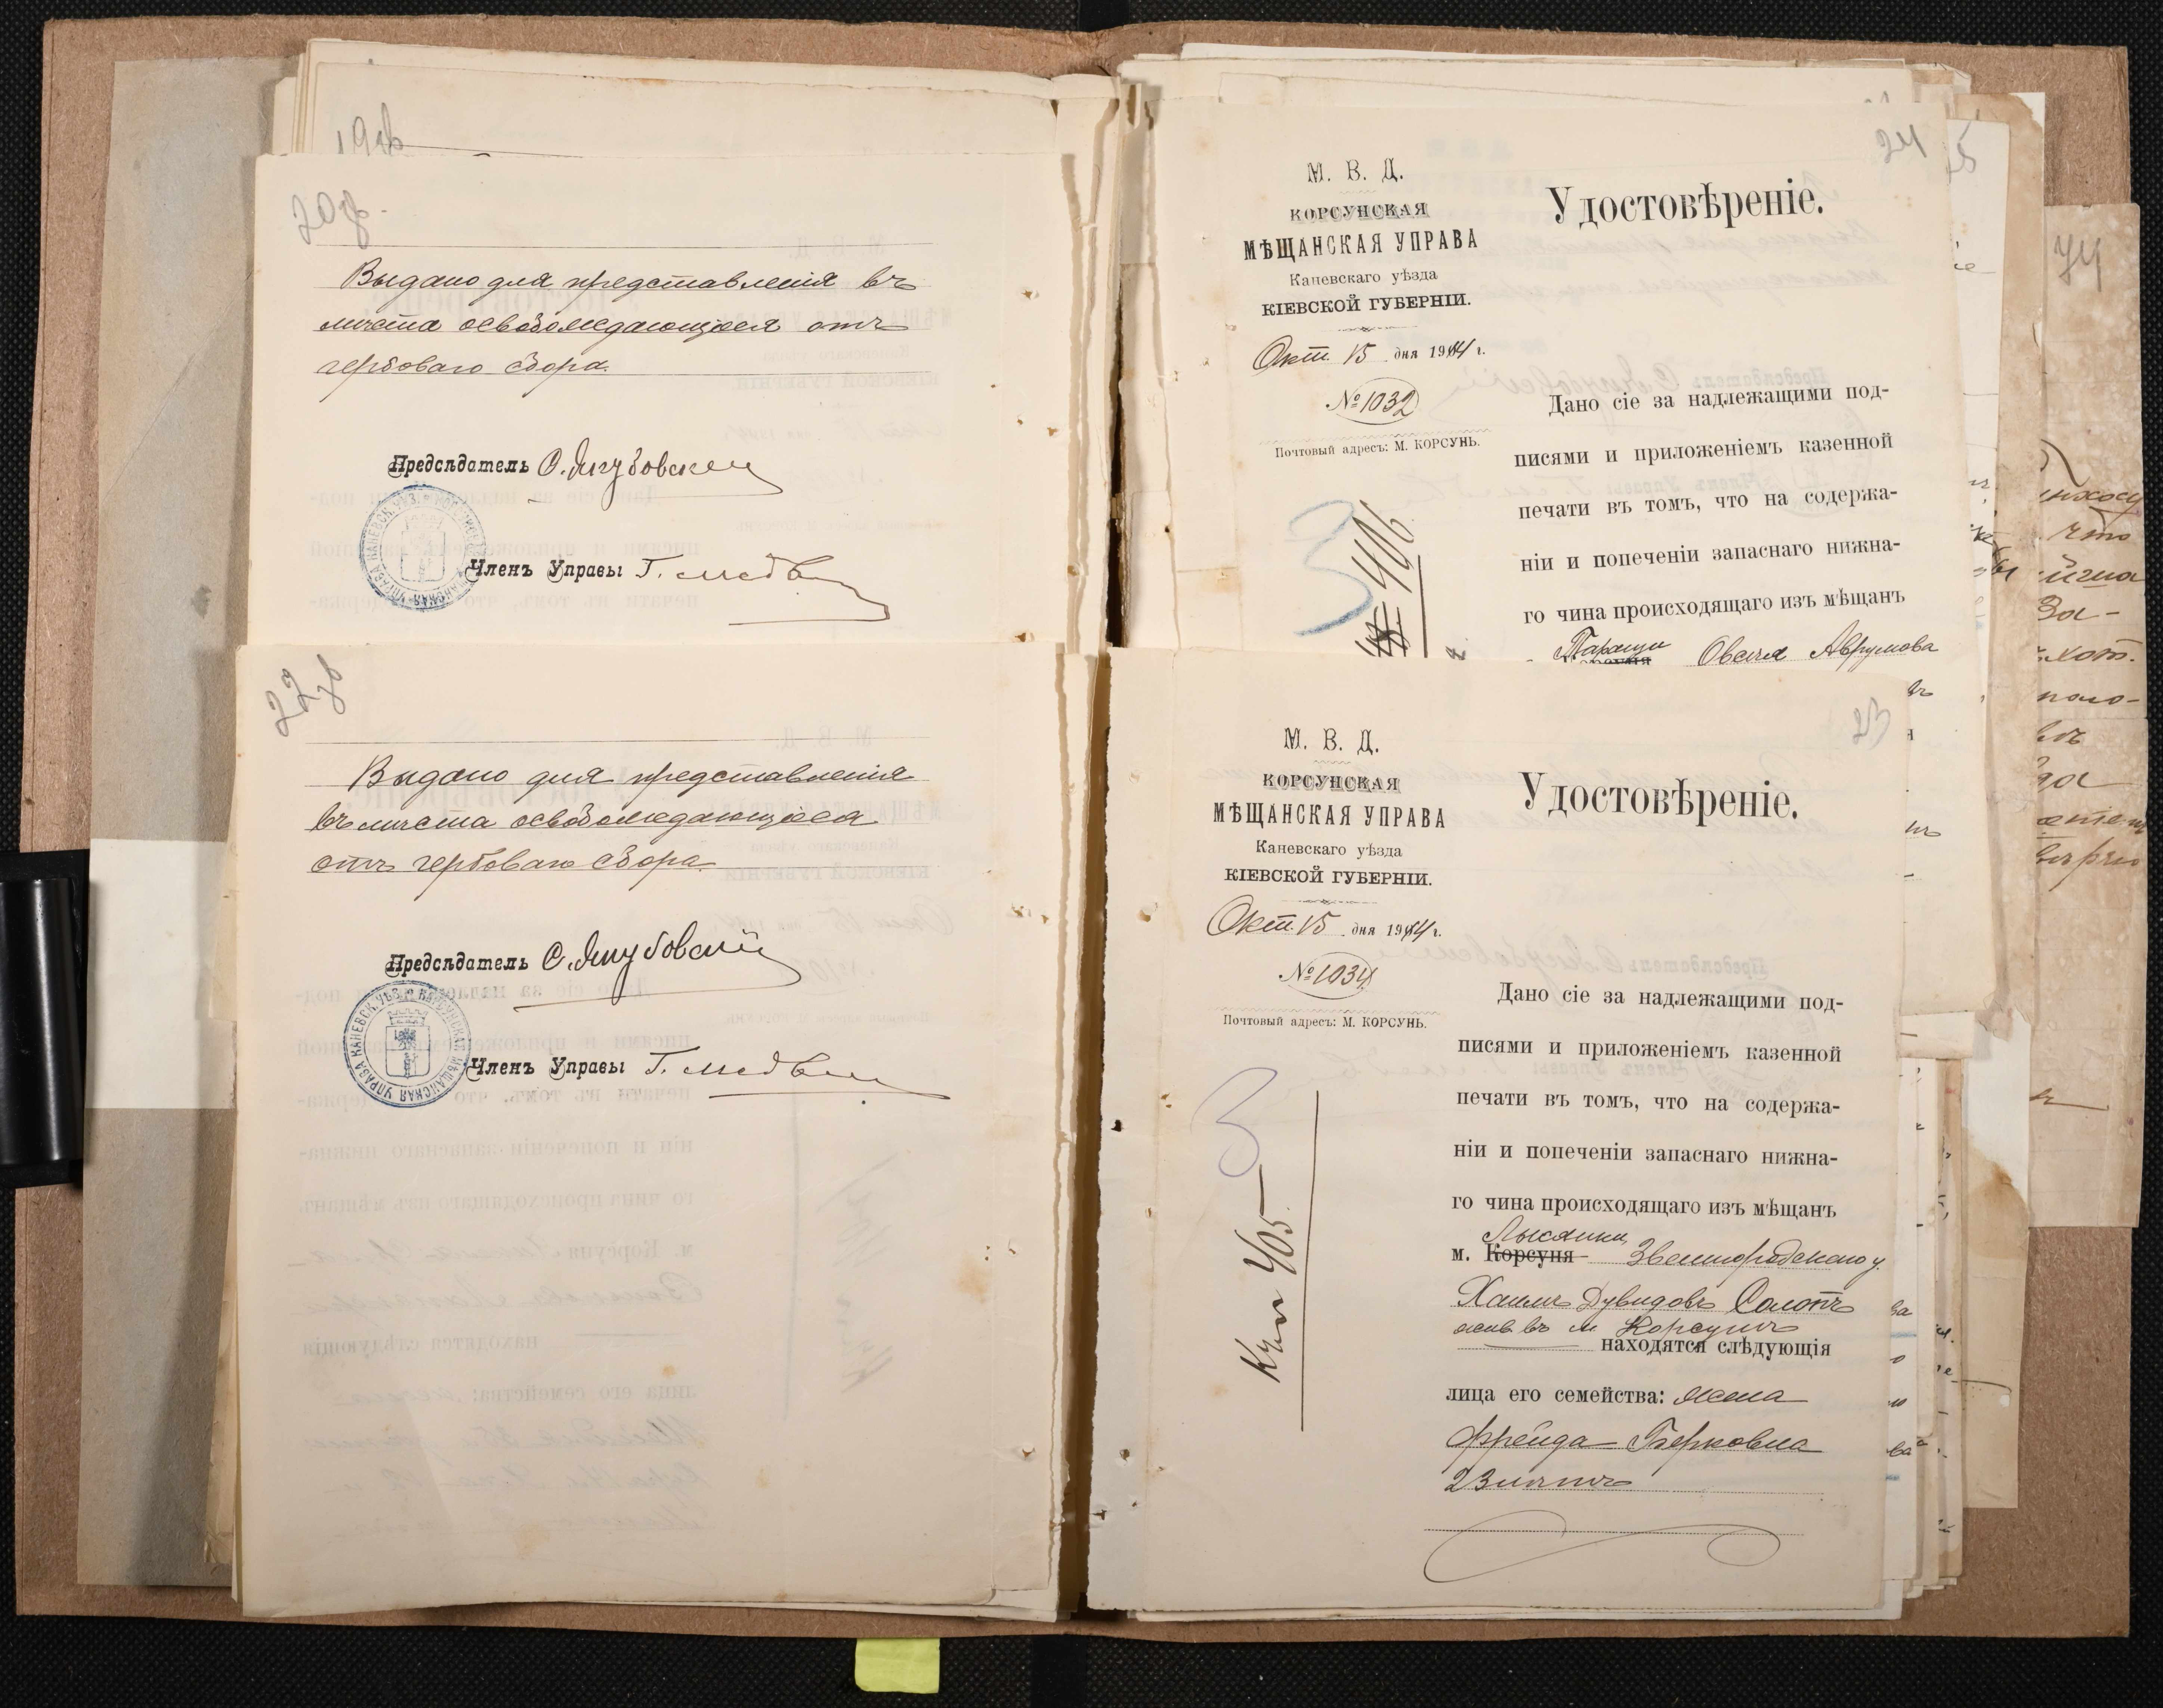 19об
20об.
Выдано для представленія въ
мѣста освобождающіяся отъ
гербоваго сбора.
Предсѣдатель С. Якубовскій
Членъ Управы Г. Медв
22об
Выдано для представленія
въ мѣста освобождающіяся
отъ гербоваго сбора.
Предсѣдатель С. Якубовскій
КАНЕВСК. УѢЗ. КОРСУНСКАЯ МѢЩАНСКАЯ УПРАВА
Членъ Управы Г. Медв
24
М. В. Д.
КОРСУНСКАЯ
МѢЩАНСКАЯ УПРАВА
Каневскаго уѣзда
КІЕВСКОЙ ГУБЕРНІИ.
Окт. 15 дня 1914 г.
№ 1032
Почтовый адресъ: М. КОРСУНЬ.
Удостовѣреніе.
Дано сіе за надлежащими под-
писями и приложеніемъ казенной
печати въ томъ, что на содержа-
ніи и попеченіи запаснаго нижна-
го чина происходящаго изъ мѣщанъ
Таращи Овсія Аврумова
3
406
23
М. В. Д.
КОРСУНСКАЯ
МѢЩАНСКАЯ УПРАВА
Каневскаго уѣзда
КІЕВСКОЙ ГУБЕРНІИ.
Окт. 15 дня 1914 г.
№ 1034
Почтовый адресъ: М. КОРСУНЬ.
Удостовѣреніе.
Дано сіе за надлежащими под-
писями и приложеніемъ казенной
печати въ томъ, что на содержа-
ніи и попеченіи запаснаго нижна-
го чина происходящаго изъ мѣщанъ
Лысянки
м. Корсуня Звенигородскаго у.
Хаимъ Дувидовъ Солотъ
жив. въ м Корсунѣ
находятся слѣдующія
лица его семейства: жена
Фрейда Берковна
23 лѣтъ
3
405
74